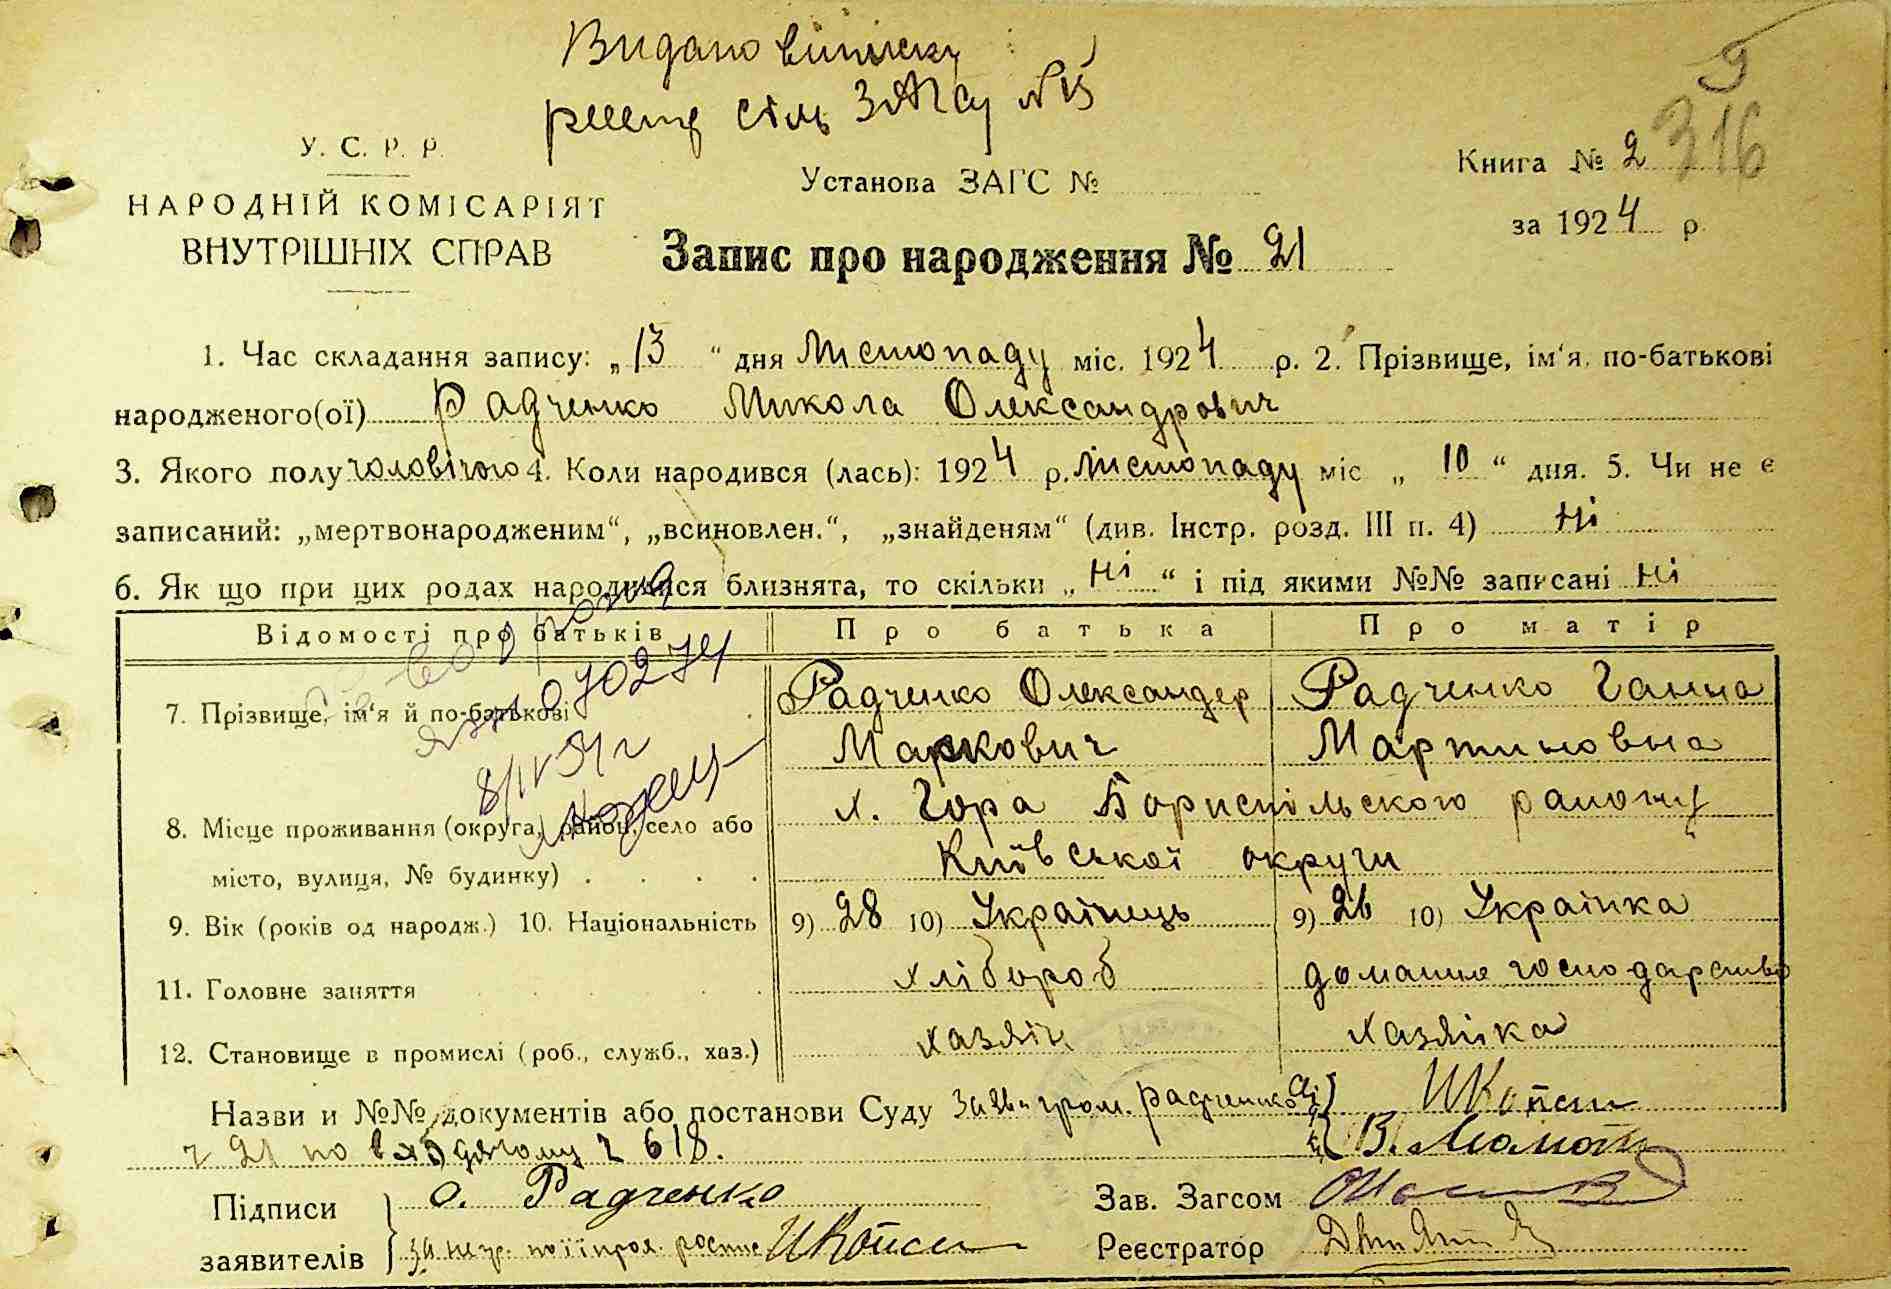 Видано виписку
У. С. Р. Р.
НАРОДНІЙ КОМІСАРІЯТ
ВНУТРІШНІХ СПРАВ
Установа ЗАГС №
Книга № 2
316
за 1924 р.
Запис про народження № 21
1. Час складання запису: „13“ дня Листопаду міс. 1924 р. 2. Прізвище, ім'я, по-батькові
народженого(ої) Радченко Микола Олександрович
3. Якого полу чоловічого 4. Коли народився (лась): 1924 р. Листопаду міс „10“ дня. 5. Чи не є
записаний: „мертвонародженим“, „всиновлен.“, „знайденям“ (див. Інстр. розд. III п. 4) Ні
6. Як що при цих родах народилися близнята, то скільки „Ні“ і під якими №№ записані Ні
Відомості про батьків Про батька Про матір
7. Прізвище, ім'я й по-батькові
Радченко Олександер Маркович
Радченко Ганна Мартиновна
070274
8/IV 51 г
8. Місце проживання (округа, район, село або
місто, вулиця, № будинку)
х. Гора Бориспільського району
Київської округи
9. Вік (років од народж.) 10. Національність 9) 28 10) Українець 9) 26 10) Українка
11. Головне заняття хлібороб домашнє господарство
12. Становище в промислі (роб., служб., хаз.) хазяїн хазяйка
Назви и №№ документів або постанови Суду заява гром. Радченко
ч 21 по входячому ч 618.
Підписи
заявителів
О. Радченко
Зав. Загсом
Реєстратор